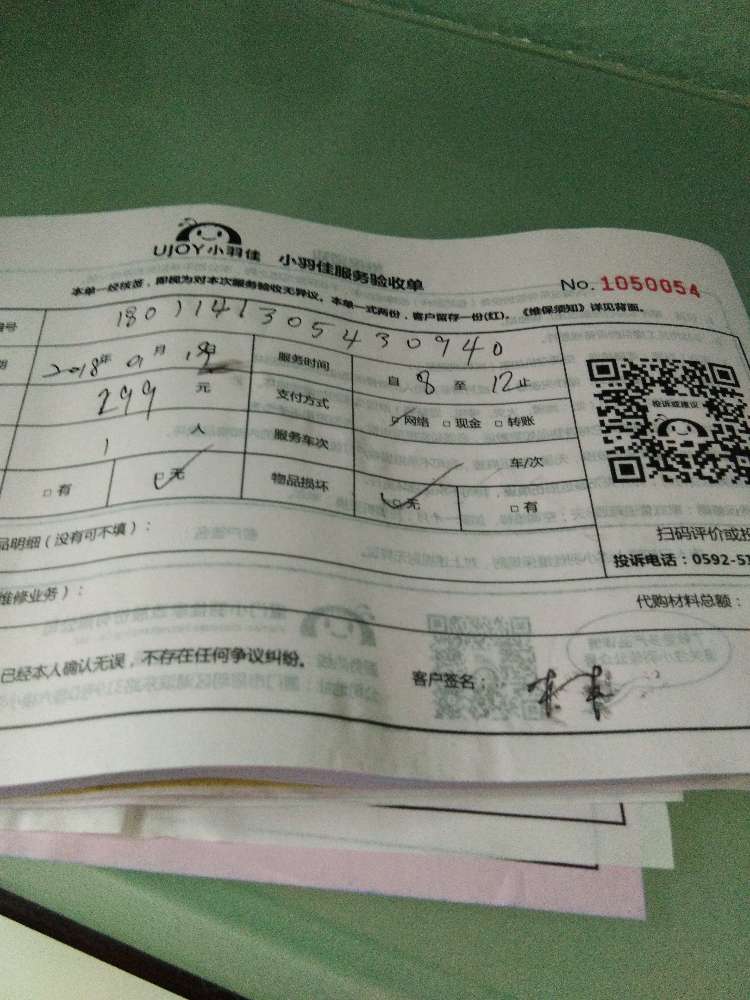 UJOY小羽佳 小羽佳服务验收单
No. 1050054
本单一经核签，即视为对本次服务验收无异议。本单一式两份，客户留存一份(红)。《维保须知》详见背面。
编号 1801141305430940
期 2018年 9月 日 服务时间 自 8 至 12止
299 元 支付方式 网络 现金 转账
1 人 服务车次 车/次
有 无 物品损坏 无 有
投诉或建议
扫码评价或投
投诉电话：0592-51
品明细（没有可不填）：
维修业务）：
代购材料总额：
已经本人确认无误，不存在任何争议纠纷。
客户签名：